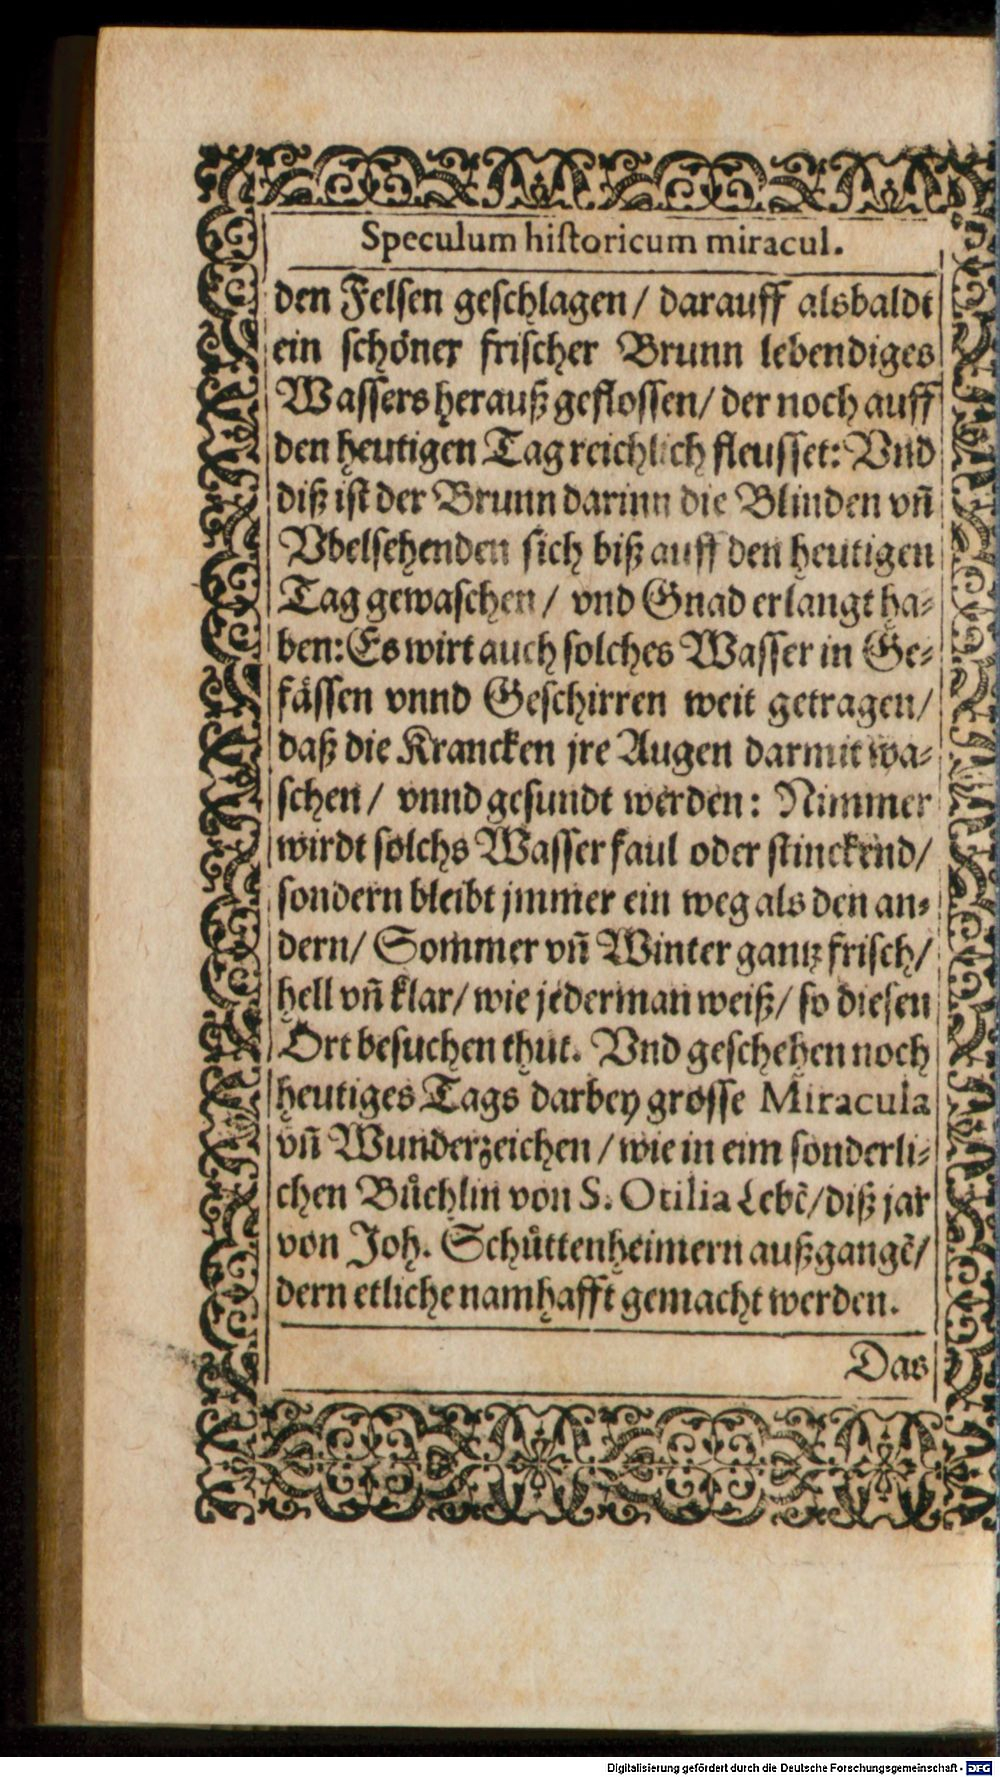 Speculum historicum miracul.
den Felsen geschlagen / darauff alsbaldt
ein schöner frischer Brunn lebendiges
Wassers herauß geflossen / der noch auff
den heutigen Tag reichlich fleusset: Vnd
diß ist der Brunn darinn die Blinden vñ
Vbelsehenden sich biß auff den heutigen
Tag gewaschen / vnd Gnad erlangt ha-
ben: Es wirt auch solches Wasser in Ge-
fässen vnnd Geschirren weit getragen /
daß die Krancken jre Augen darmit wa-
schen / vnnd gesundt werden: Nimmer
wirdt solchs Wasser faul oder stinckend /
sondern bleibt jmmer ein weg als den an-
dern / Sommer vñ Winter gantz frisch /
hell vñ klar / wie jederman weiß / so diesen
Ort besuchen thut. Vnd geschehen noch
heutiges Tags darbey grosse Miracula
vñ Wunderzeichen / wie in eim sonderli-
chen Bůchlin von S. Otilia Lebẽ / diß jar
von Joh. Schůttenheimern außgangẽ /
dern etliche namhafft gemacht werden.
Das
Digitalisierung gefördert durch die Deutsche Forschungsgemeinschaft - DFG